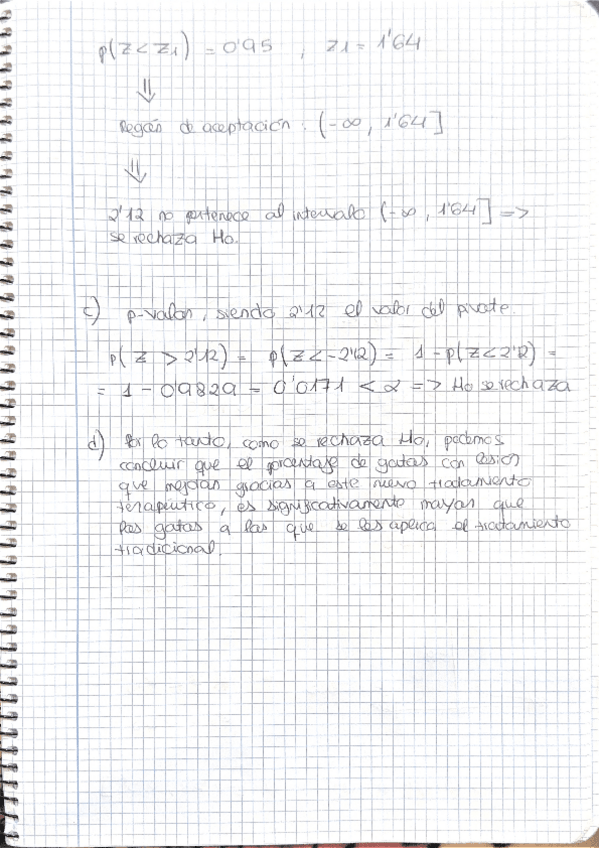 p(Z < Z1) = 0'95 , Z1 = 1'64
⇓
Región de aceptación: (-∞, 1'64]
⇓
2'12 no pertenece al intervalo (-∞, 1'64] =>
se rechaza Ho.
c) p-valor, siendo 2'12 el valor del pivote.
p(Z > 2'12) = p(Z < -2'12) = 1 - p(Z < 2'12) =
= 1 - 0'9829 = 0'0171 < α => Ho se rechaza
d) Por lo tanto, como se rechaza Ho, podemos
concluir que el porcentaje de gatas con lesión
que mejoran gracias a este nuevo tratamiento
terapéutico, es significativamente mayor que
las gatas a las que se les aplica el tratamiento
tradicional.